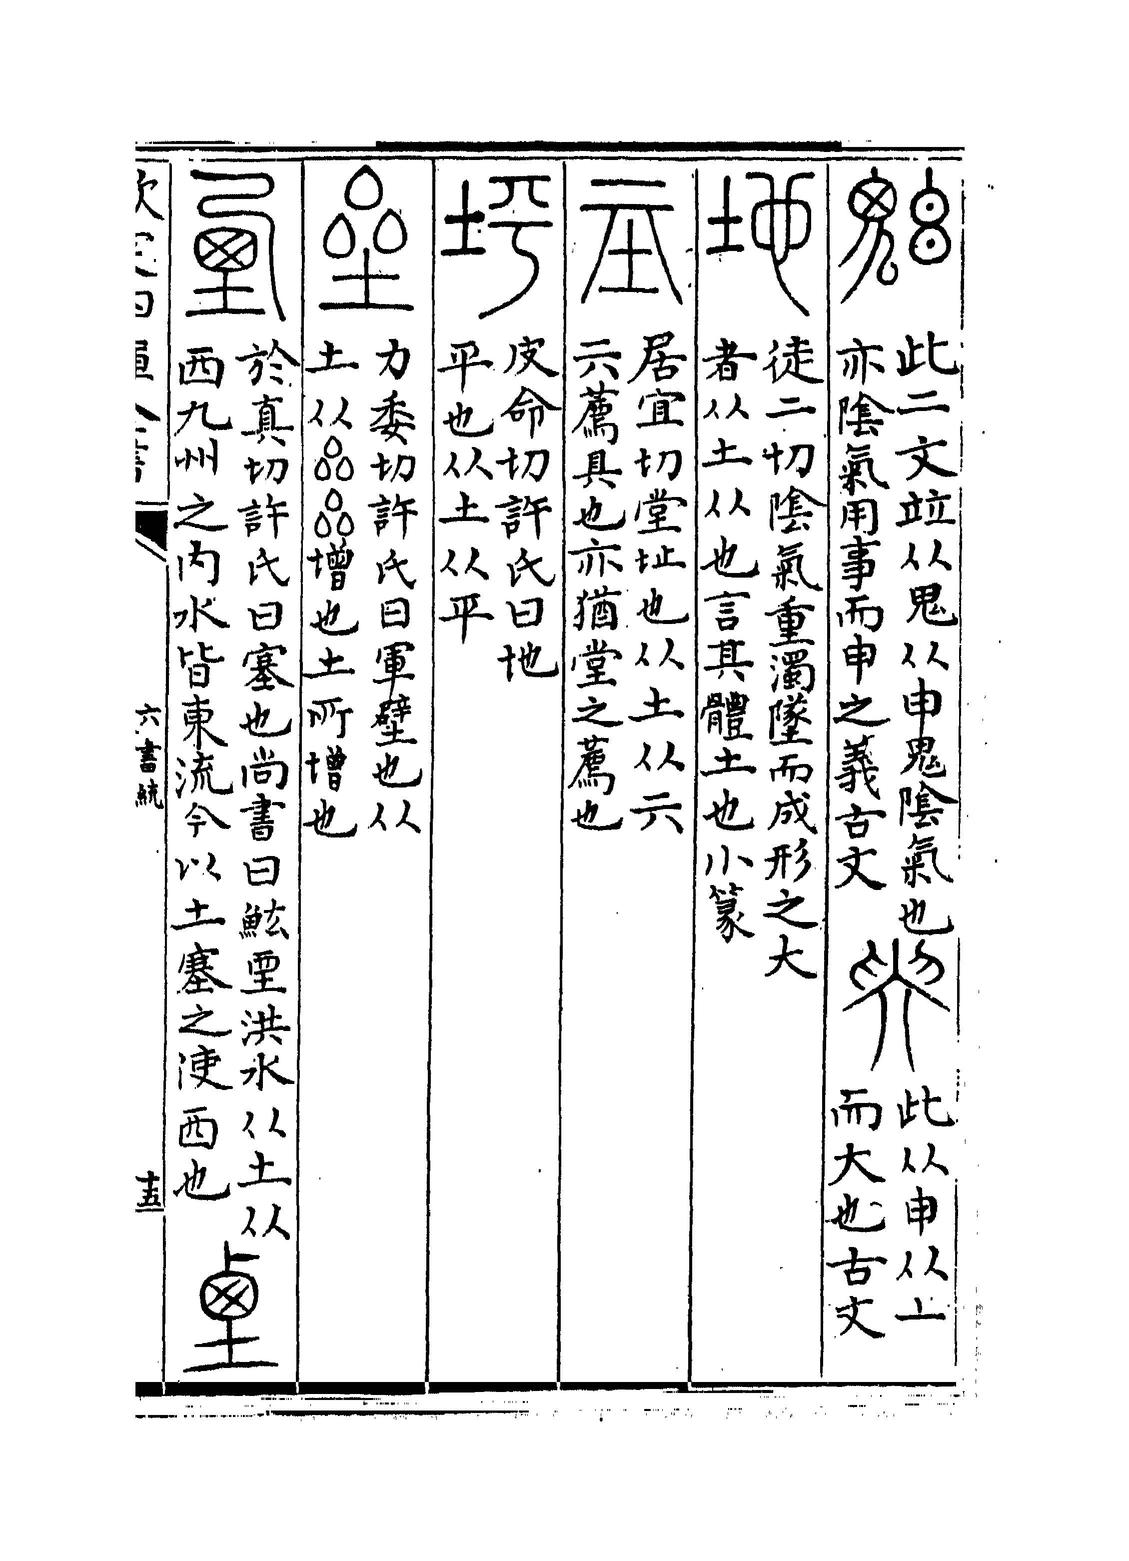 𩲏 此二文竝从鬼从申鬼陰氣也
亦陰氣用事而申之義古文
此从申从丄
而大也古文
地 徒二切陰氣重濁墜而成形之大
者从土从也言其體土也小篆
居宜切堂址也从土从丌
丌薦具也亦猶堂之薦也
坪 皮命切許氏曰地
平也从土从平
垒 力委切許氏曰軍壁也从
土从厽厽增也土所增也
垔 於真切許氏曰塞也尚書曰鮌垔洪水从土从
西九州之内水皆東流今以土塞之使西也
欽定四庫全書
六書統
十五